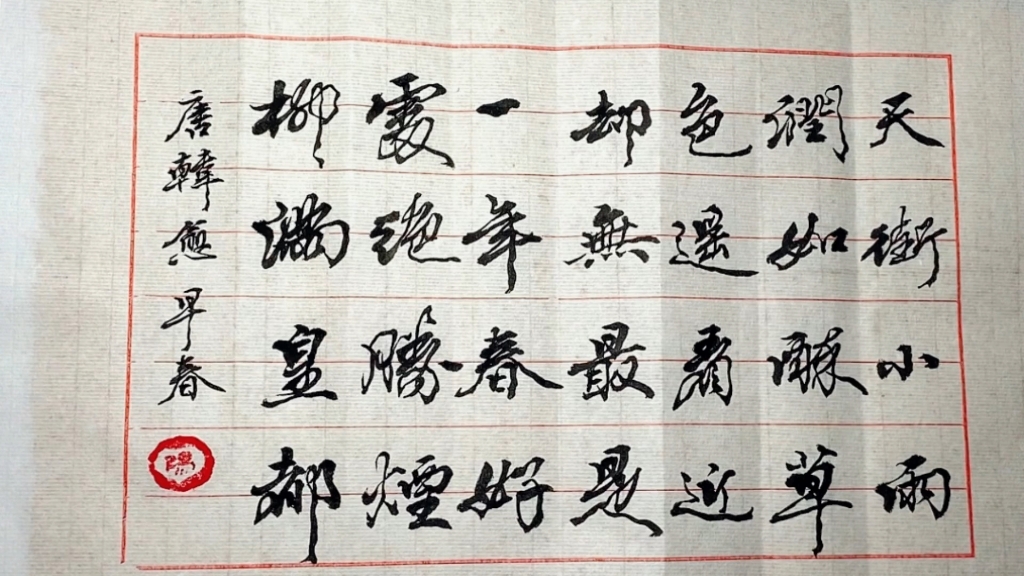 天街小雨
潤如酥草
色遥看近
却無最是
一年春好
處絕勝煙
柳滿皇都
唐韓愈早春